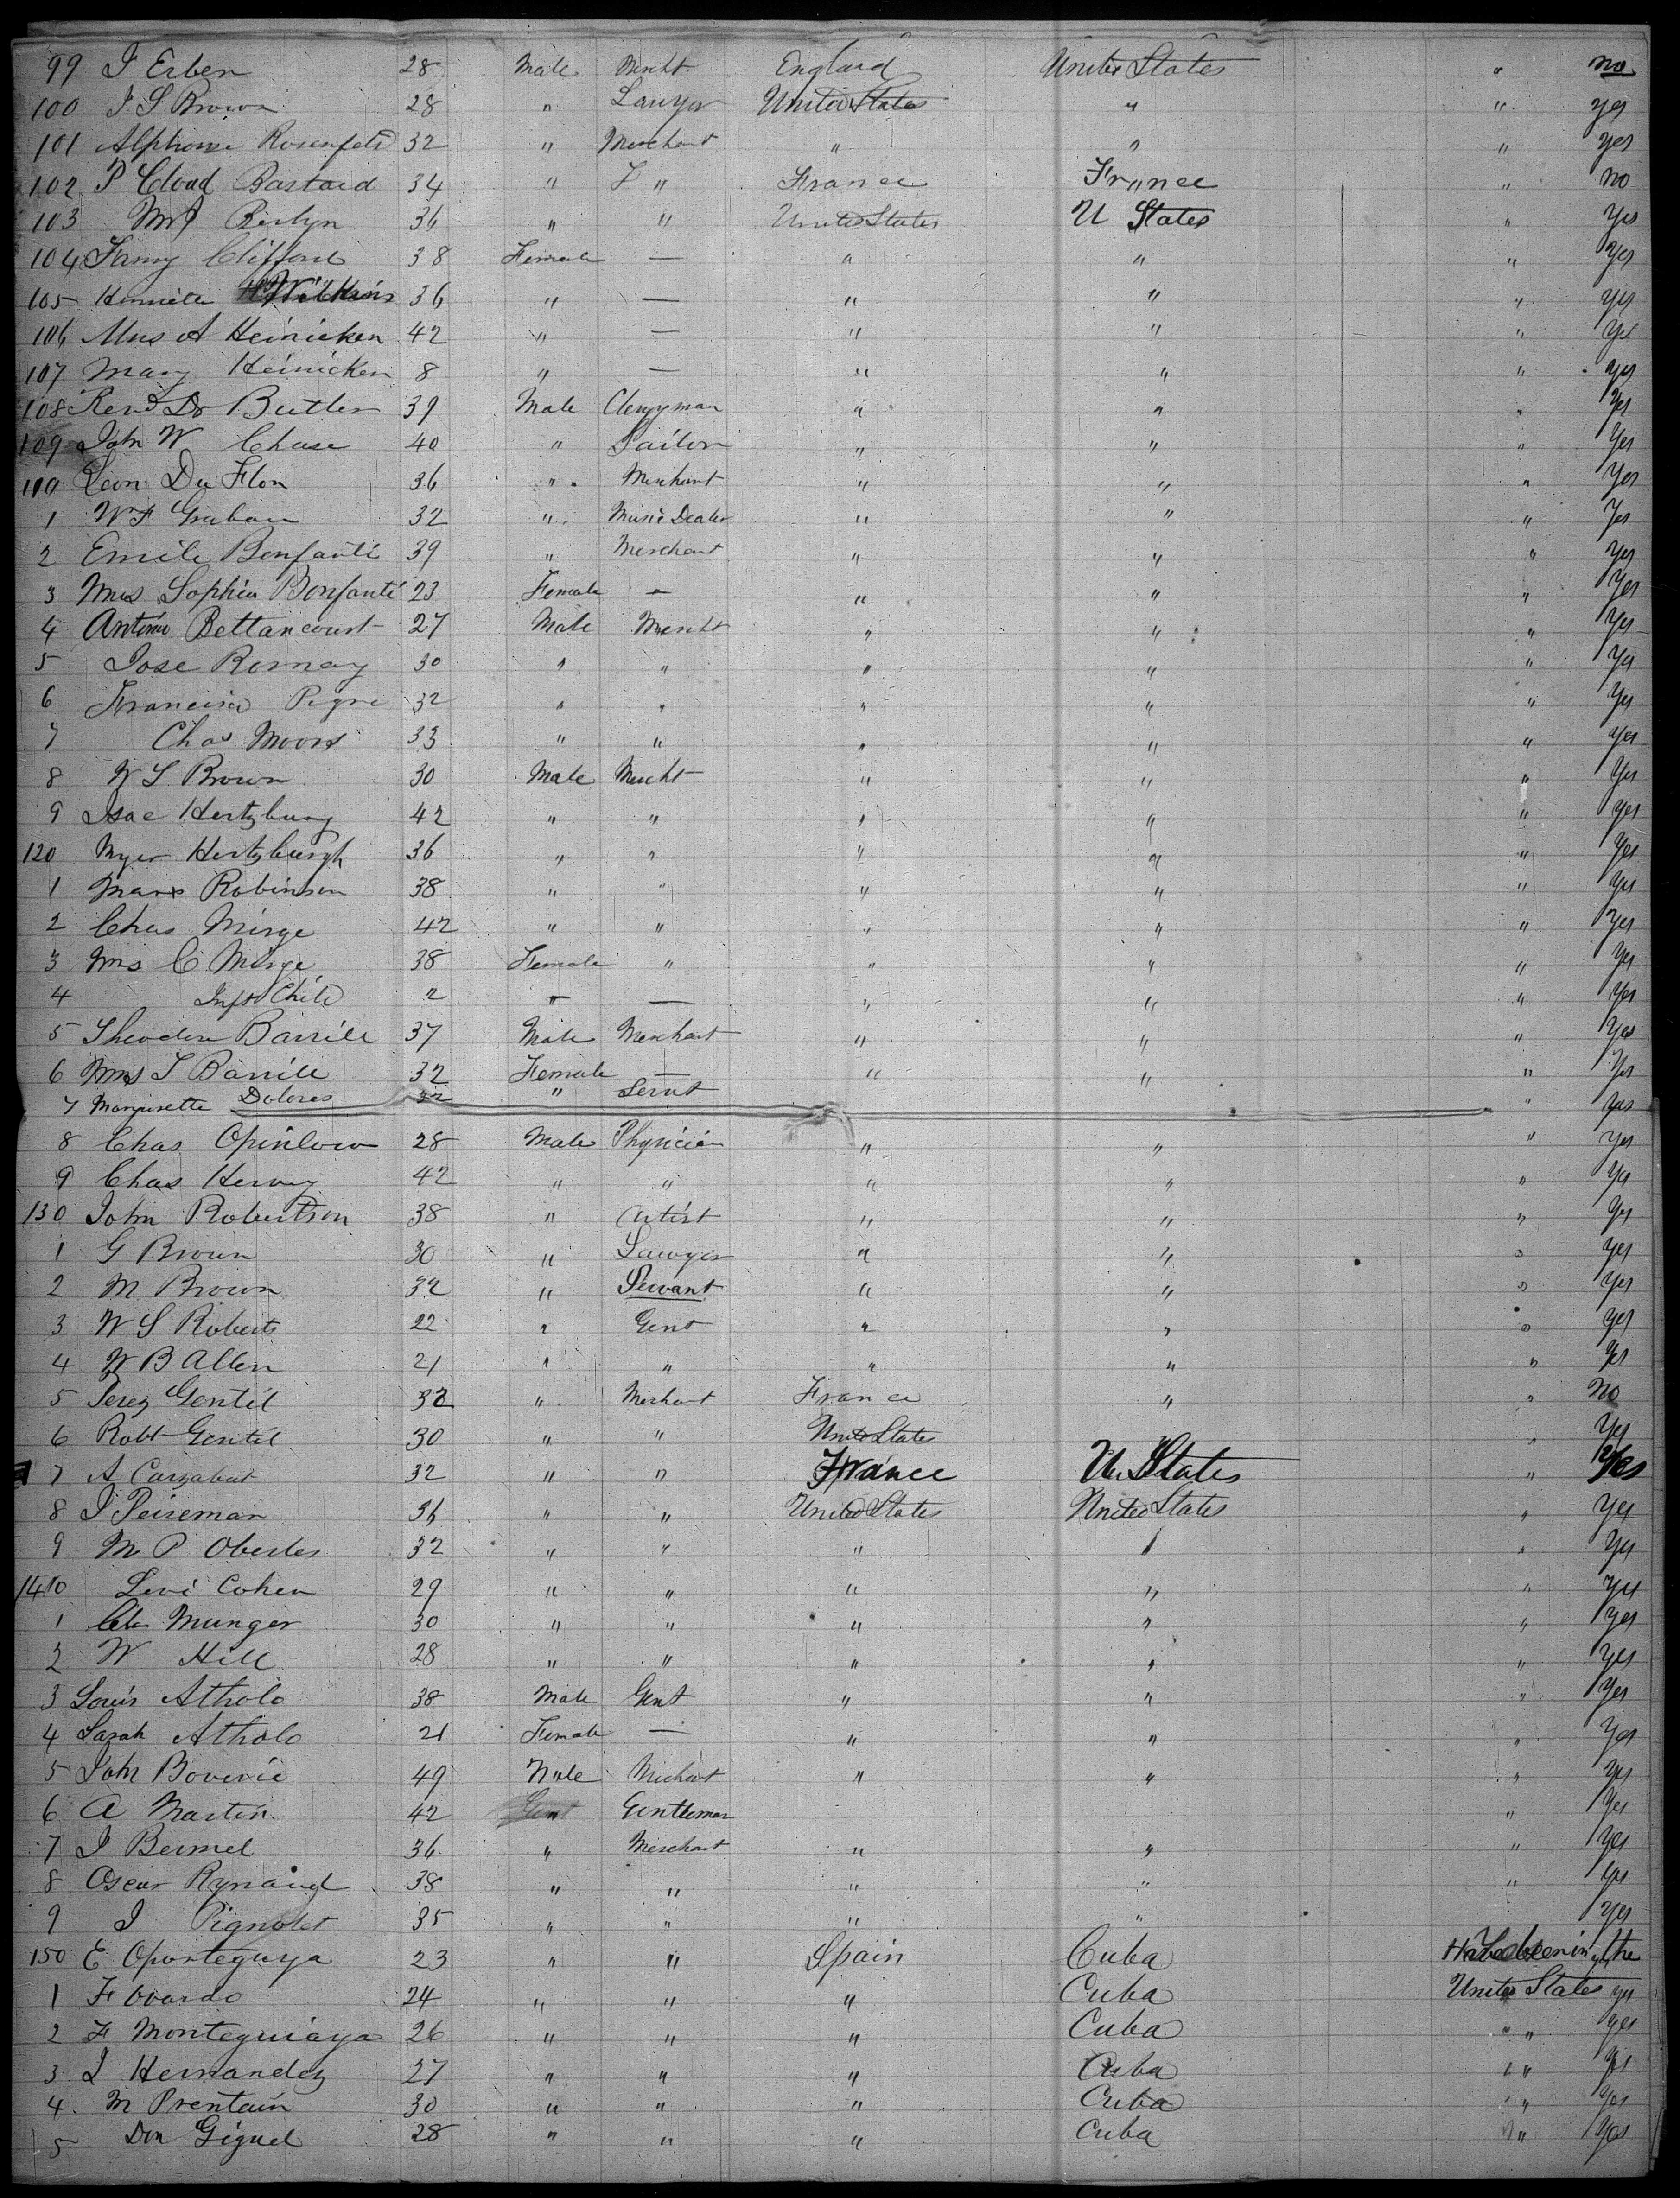 99 J Erben 28 Male Mercht England United States " no
100 J S Brown 28 " Lawyer United States " " yes
101 Alphonse Rosenfeld 32 " Merchant " " " yes
102 P Cloud Bastard 34 " " France France " no
103 36 " " United States U States " Yes
104 Fanny Clifford 38 Female — " " " Yes
105 Henrietta Wilkins 36 " — " " " yes
106 Mrs A Heinicken 42 " — " " " yes
107 Mary Heinicken 8 " — " " " yes
108 Revd Dr Butler 39 Male Clergyman " " " Yes
109 John W Chase 40 " Sailor " " " Yes
110 Leon Du Flon 36 " Merchant " " " Yes
1 W F Graham 32 " Music Dealer " " " Yes
2 Emile Bonfanti 39 " Merchant " " " Yes
3 Mrs Sophia Bonfanti 23 Female — " " " Yes
4 Antonio Bettancourt 27 Male Mercht " " " Yes
5 Jose Romay 30 " " " " " Yes
6 32 " " " " " Yes
7 Chas Moors 33 " " " " " Yes
8 W S Brown 30 Male Mercht " " " Yes
9 Isac Hertzburg 42 " " " " " yes
120 Myer Hertzburgh 36 " " " " " Yes
1 Marx Robinson 38 " " " " " Yes
2 Chas Mirge 42 " " " " " Yes
3 Mrs C Mirge 38 Female " " " " Yes
4 Inft Child 2 " — " " " Yes
5 Theodore Barrill 37 Male Merchant " " " Yes
6 Mrs T Barrill 32 Female — " " " Yes
7 Margurette Dolores 32 " Servt " yes
8 Chas 28 Male Physician " " " yes
9 Chas Hervey 42 " " " " " Yes
130 John Robertson 38 " Artist " " " Yes
1 G Brown 30 " Lawyer " " " yes
2 M Brown 32 " Servant " " " yes
3 W S Roberts 22 " Gent " " " yes
4 W B Allen 21 " " " " " Yes
5 Perez Gentil 32 " Merchant France " " No
6 Robt Gentil 30 " " United States " " Yes
7 A 32 " " France U. States " Yes
8 J Peiseman 36 " " United States United States " Yes
9 M P Oberles 32 " " " " " Yes
140 Levi Cohen 29 " " " " " Yes
1 Munger 30 " " " " " Yes
2 W Hill 28 " " " " " Yes
3 Louis Atholo 38 Male Gent " " " Yes
4 Sarah Atholo 21 Female — " " " Yes
5 John Boverie 49 Male Merchant " " " Yes
6 A Martin 42 " Gentleman " Yes
7 J Bermel 36 " Merchant " " " Yes
8 Oscar Rynaud 38 " " " " " Yes
9 J Pignolet 35 " " " " Yes
150 E Oporteguya 23 " " Spain Cuba Have been in the
1 F Ovardo 24 " " " Cuba United States yes
2 F Monteguiaya 26 " " " Cuba " " yes
3 J Hernandez 27 " " " Cuba " " Yes
4 M Prentain 30 " " " Cuba " " Yes
5 Don Giguel 28 " " " Cuba " " Yes